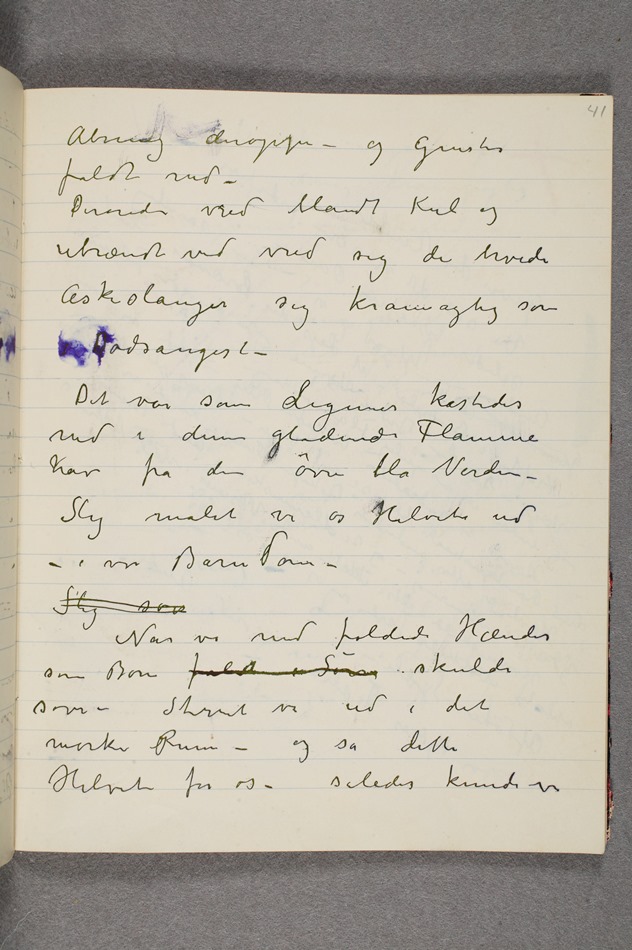 41
Åbning deroppe – og Gnister
faldt ned –
Dernede vred blandt Kul og
ubrændt ved vred sig de hvide
Askeslanger sig krampagtig som
Dødsangest –
Det var som Legemer kastedes
ned i denne glødende Flamme
hav fra den övre blå Verden –
Slig malet vi os Helvete ud
– i vor Barndom –
Slig som
Når vi med foldede Hænder
som Børn faldt i Sövn skulde
sove – Stirret vi ud i det
mørke Rum – og så dette
Helvete for os – således kunde vi